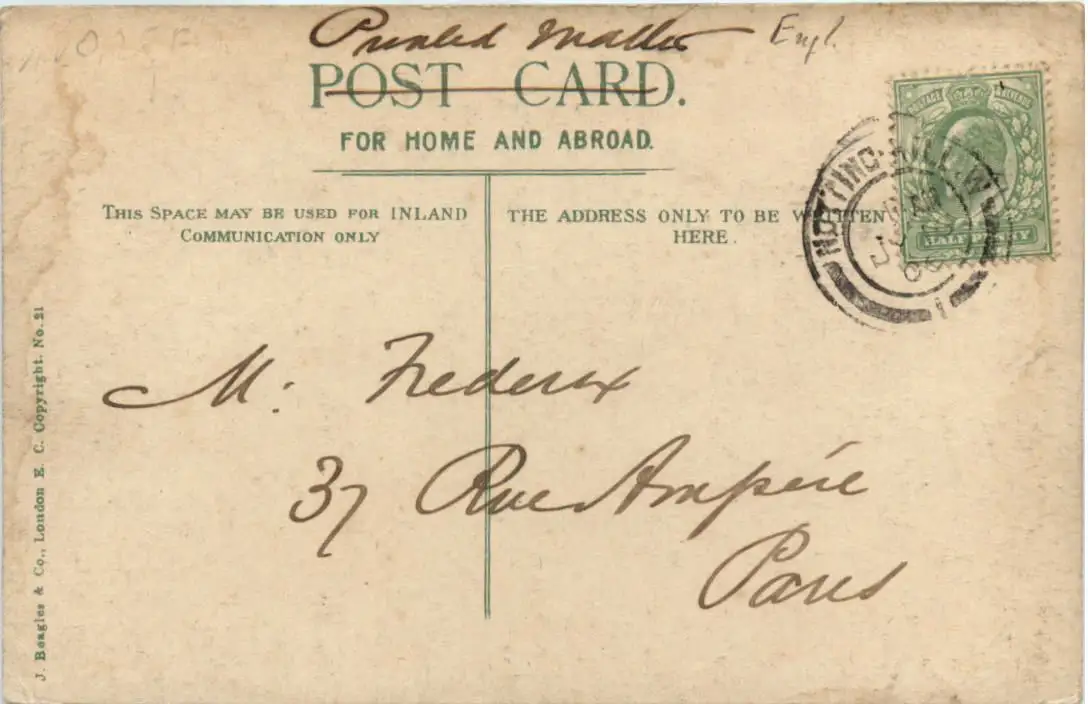 Printed Matter
Engl.
POST CARD.
FOR HOME AND ABROAD.
THIS SPACE MAY BE USED FOR INLAND
COMMUNICATION ONLY
THE ADDRESS ONLY TO BE WRITTEN
HERE.
NOTTING-HILL.W
HALFPENNY
POSTAGE
M. Frederix
37 Rue Ampère
Paris
J. Beagles & Co., London E. C. Copyright. No. 21